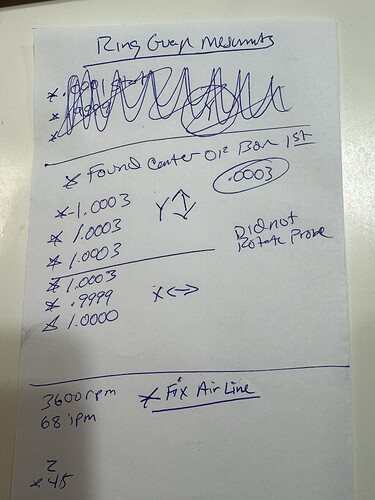 Ring Guage Mesurmnts
* Found Center OF Bore 1st
.0003
*-1.0003
* 1.0003
* 1.0003
Y
Did not
Rotate Probe
* 1.0003
* .9999
* 1.0000
X
3600 rpm
68 ipm
* Fix Air Line
2
x 45